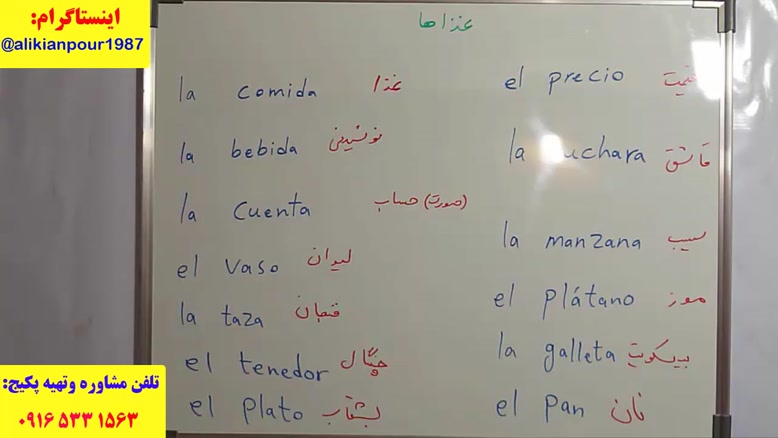 اینستاگرام:
@alikianpour1987
غذاها
la comida غذا
la bebida نوشیدنی
la cuenta (صورت) حساب
el vaso لیوان
la taza فنجان
el tenedor چنگال
el plato بشقاب
el precio قیمت
la uchara قاشق
la manzana سیب
el plátano موز
la galleta بیسکویت
el pan نان
تلفن مشاوره وتهیه پکیج:
۰۹۱۶ ۵۳۳ ۱۵۶۳